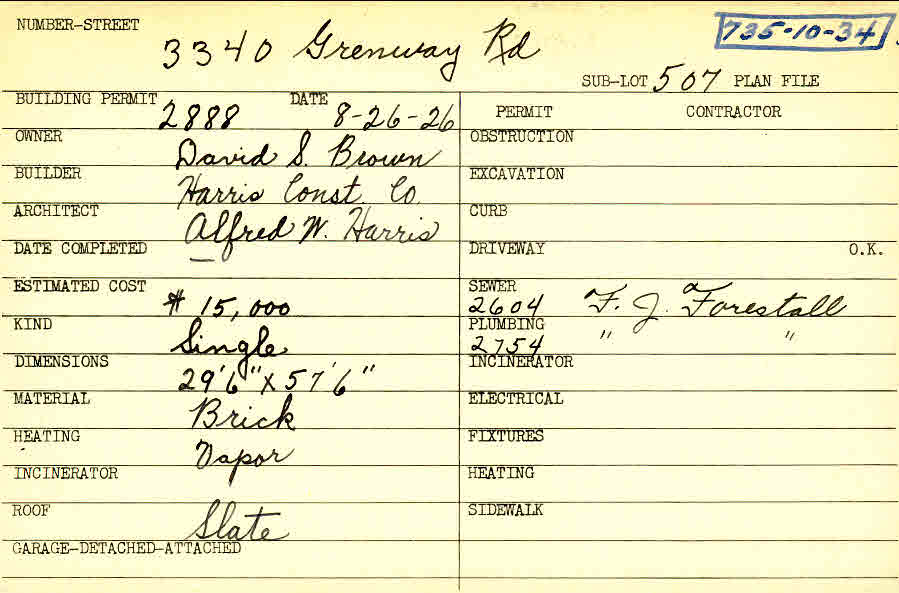 NUMBER-STREET 3340 Grenway Rd 735-10-34
SUB-LOT 507 PLAN FILE
BUILDING PERMIT 2888 DATE 8-26-26
OWNER David S. Brown
BUILDER Harris Const. Co.
ARCHITECT Alfred W. Harris
DATE COMPLETED —
ESTIMATED COST $ 15,000
KIND Single
DIMENSIONS 29'6" X 57'6"
MATERIAL Brick
HEATING Vapor
INCINERATOR
ROOF Slate
GARAGE-DETACHED-ATTACHED
PERMIT CONTRACTOR
OBSTRUCTION
EXCAVATION
CURB
DRIVEWAY O.K.
SEWER 2604 F. J. Forestall
PLUMBING 2754 " "
INCINERATOR
ELECTRICAL
FIXTURES
HEATING
SIDEWALK